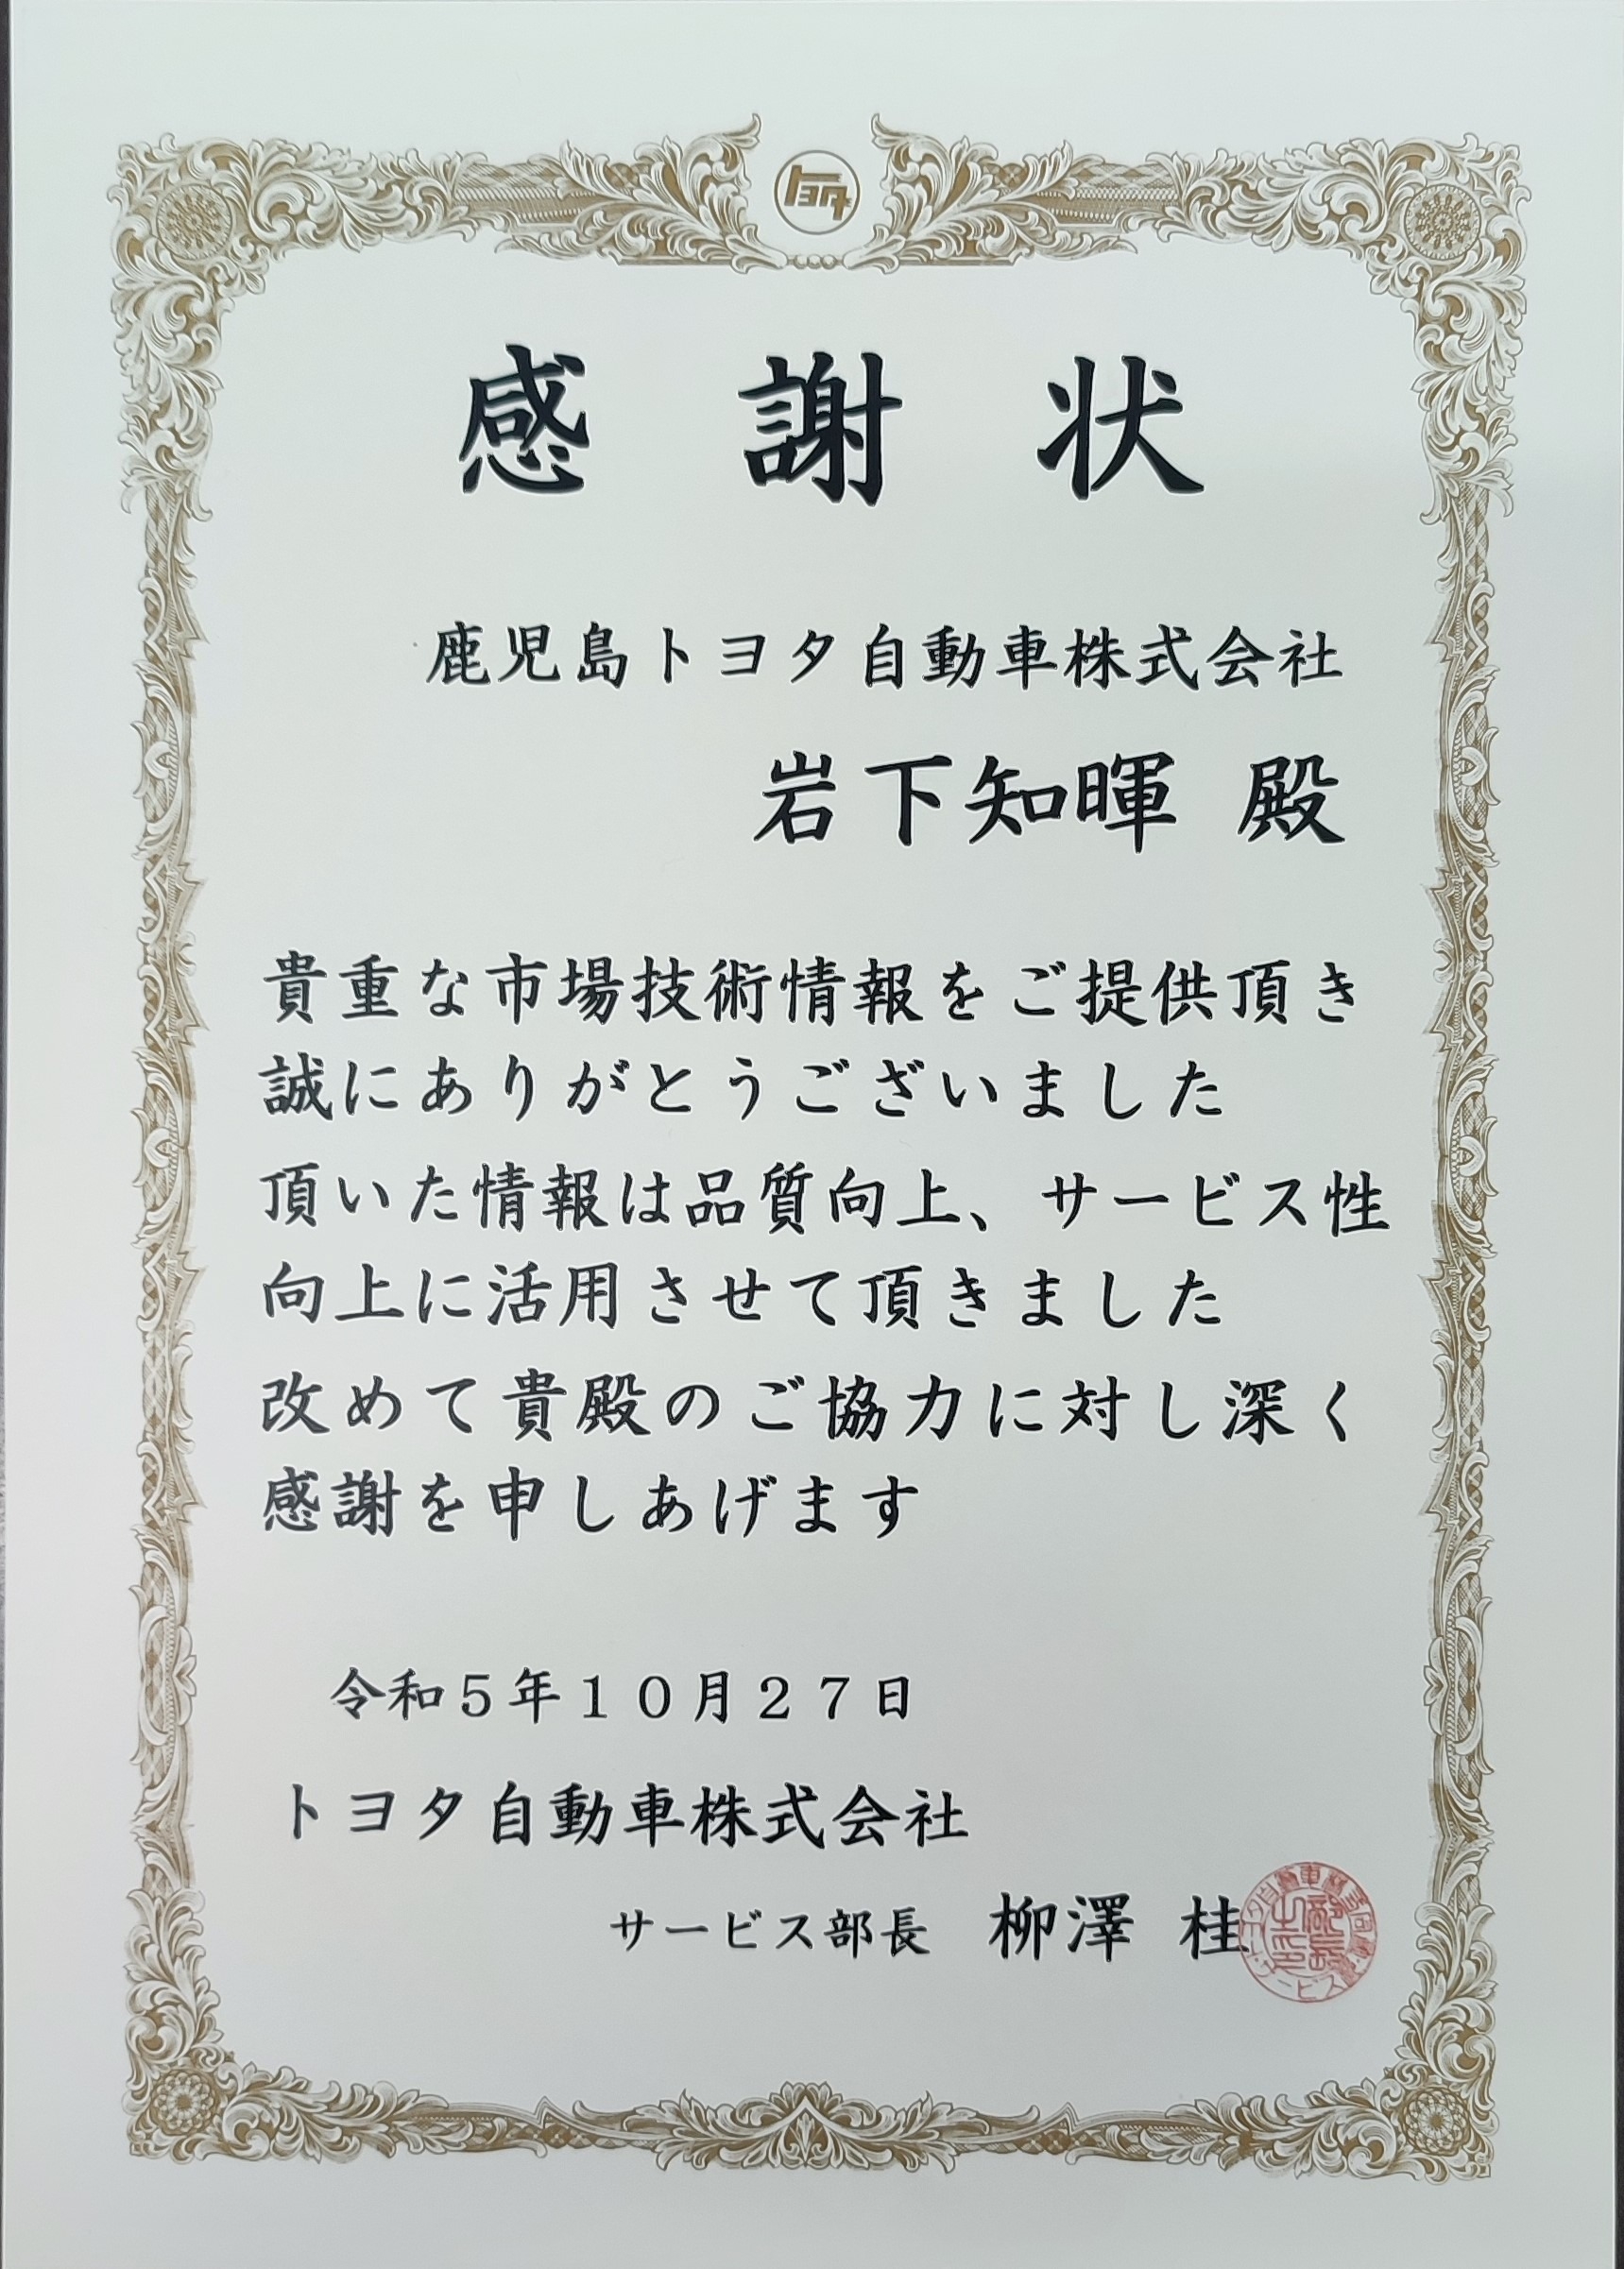 トヨタ
感謝状
鹿児島トヨタ自動車株式会社
岩下知暉 殿
貴重な市場技術情報をご提供頂き
誠にありがとうございました
頂いた情報は品質向上、サービス性
向上に活用させて頂きました
改めて貴殿のご協力に対し深く
感謝を申しあげます
令和5年10月27日
トヨタ自動車株式会社
サービス部長 柳澤 桂